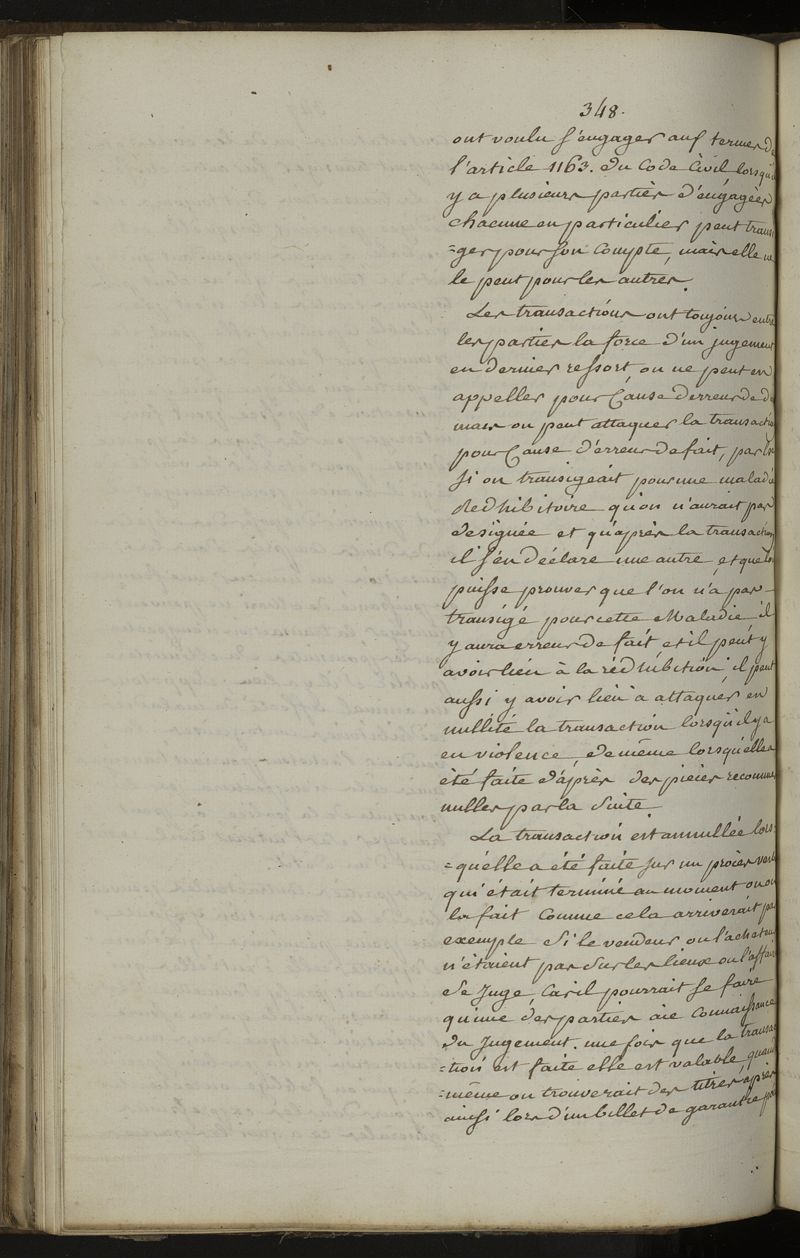 348.
ont voulu s'engager auf termes de
l'article 1163. du Code Civil, lorsqu'il
y a plusieurs partiès d'engagèes
chacune en particulier peut transi
=ger pour son Compte, mais elle ne
le peut pour les autres.
Les transactions ont toujours entre
les parties la force d'un jugement
en dernier ressort, on ne peut en
appeller pour Cause d'erreur de d
mais on peut attaquer la transactio
pour Cause d'erreur de fait, par
si on transigeait pour une maladie
Redhibitoire qu'on n'aurait pas
designée et qu'après la transaction
il s'en déclare une autre, et que
puisse prouver que l'on n'a pas
transigé pour cette Maladie il
y aura erreur de fait, et il peut y
avoir lieu à la rédhibition, il peut
aussi y avoir lieu à attaquer en
nullité la transaction lorsqu'il y a
eu violence, de même lorsqu'elle a
été faite d'après des pieces reconnues
nulles par la Suite.
La transaction est annullée lors
=qu'elle a été faite sur un procès verb
qui était terminé au moment ou on
la fait Comme cela arriverait par
exemple Si le vendeur ou l'acheteur
n'étaient pas Sur les lieux ou l'affaire
Se Juge, Car il pourrait se faire
qu'une des parties aie Connaissance
du Jugement. une fois que la transac
=tion est faite elle est valable, quand
=même on trouverait des titres après
ainsi lors d'un billet de garantie po